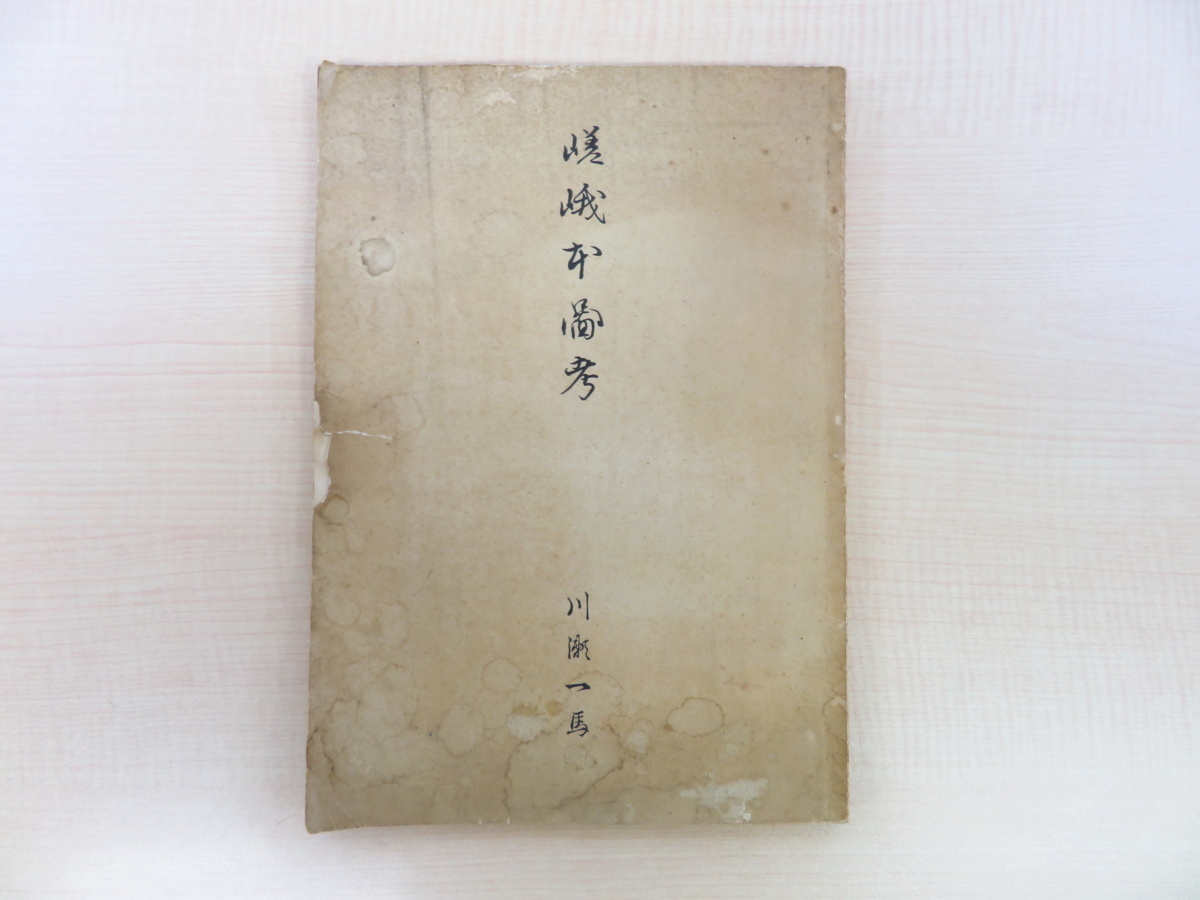 嵯峨本圖考
川瀬一馬